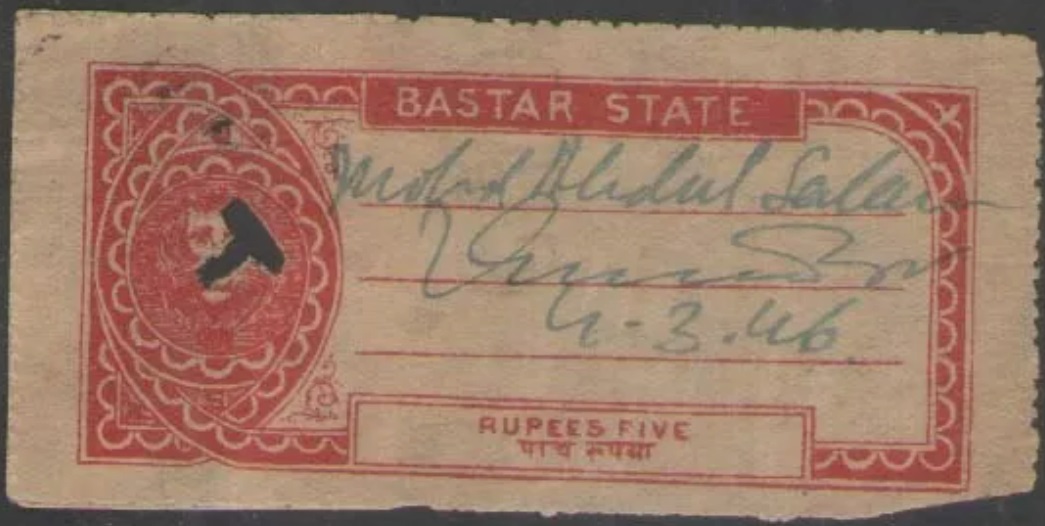 BASTAR STATE
Mohd Abdul Salam
4-3.46.
RUPEES FIVE
पांच रूपया